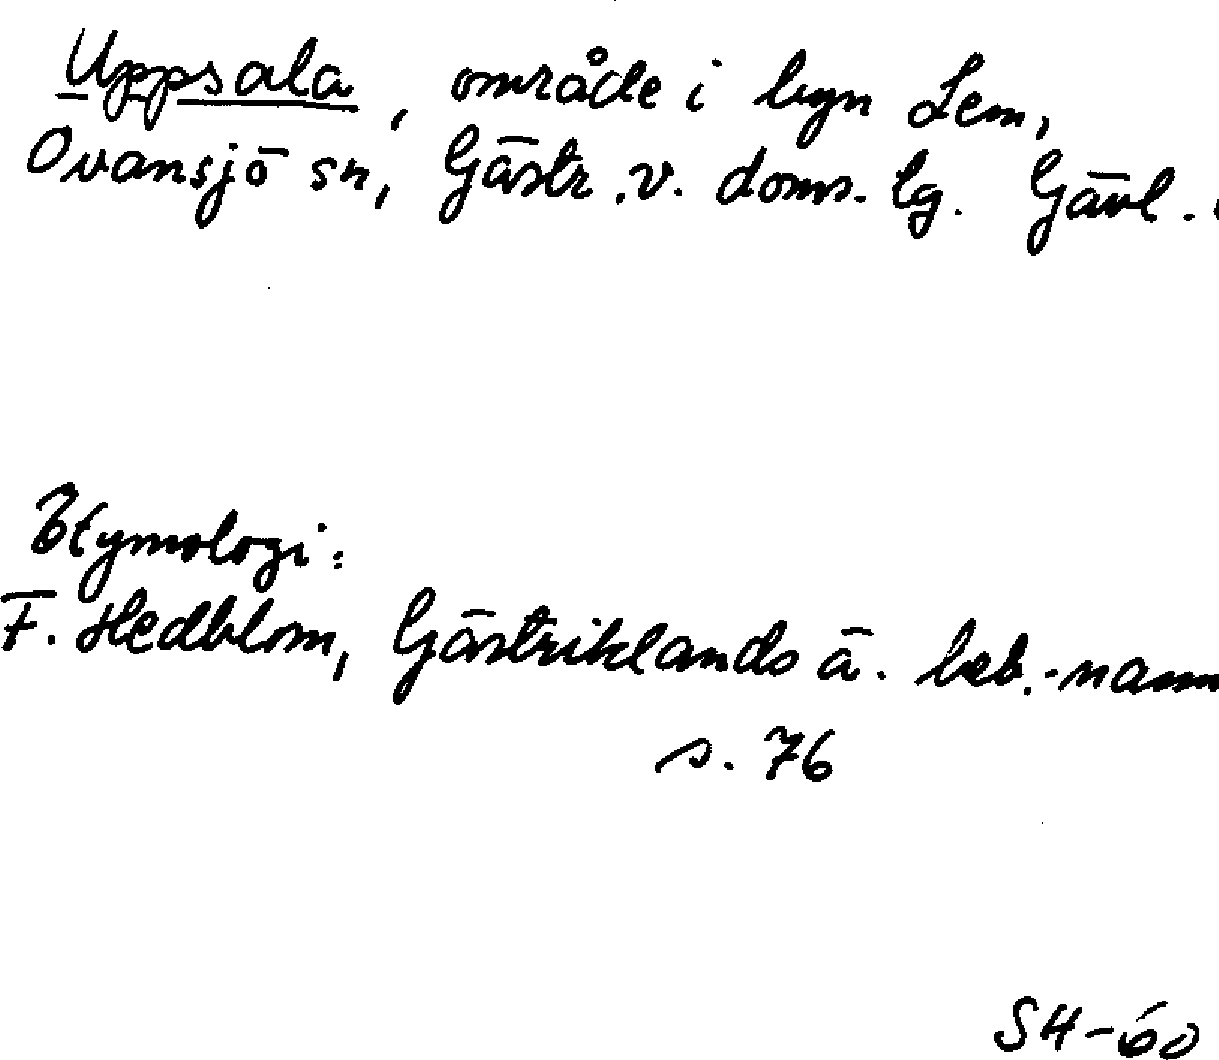 Uppsala, område i byn Lem,
Ovansjö sn, Gästr.v. doms.lg. Gävl.
Etymologi:
F. Hedblom, Gästriklands ä. beb.-namn
s. 76
SH-60